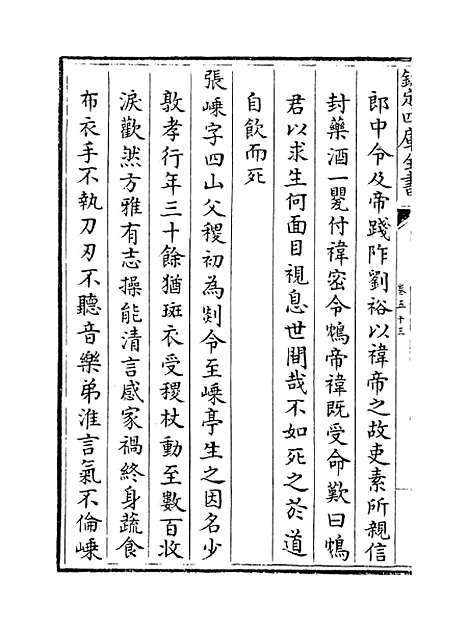 欽定四庫全書
卷五十三
郎中令及帝踐阼劉裕以禕帝之故吏素所親信
封藥酒一甖付禕密令鴆帝禕既受命歎曰鴆
君以求生何面目視息世間哉不如死之於道
自飲而死
張嵊字四山父稷初為剡令至嵊亭生之因名少
敦孝行年三十餘猶斑衣受稷杖動至數百收
淚歡然方雅有志操能清言感家禍終身蔬食
布衣手不執刀刃不聽音樂弟淮言氣不倫嵊